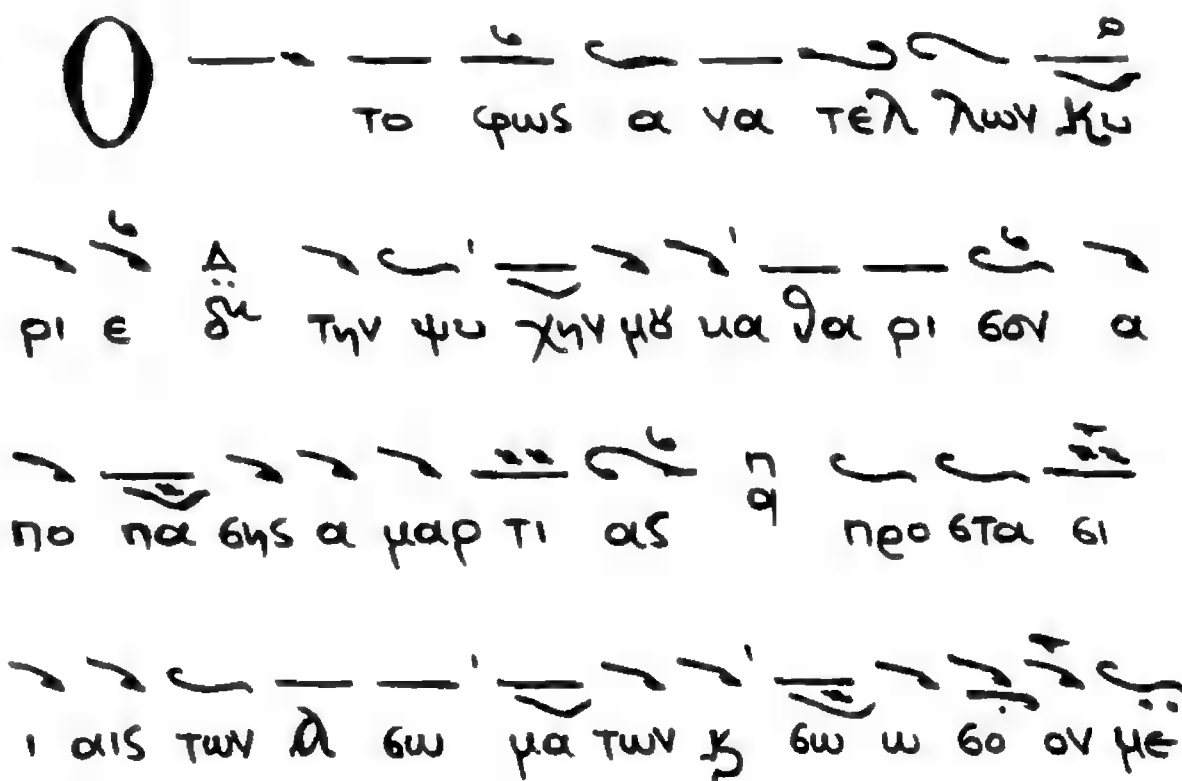 Ο το φως α να τελ λων Κυ
ρι ε Δ δι την ψυ χην μȣ κα θα ρι σον α
πο πα σης α μαρ τι ας π q προ στα σι
ι αις των Α σω μα των ϗ σω ω σο ον με